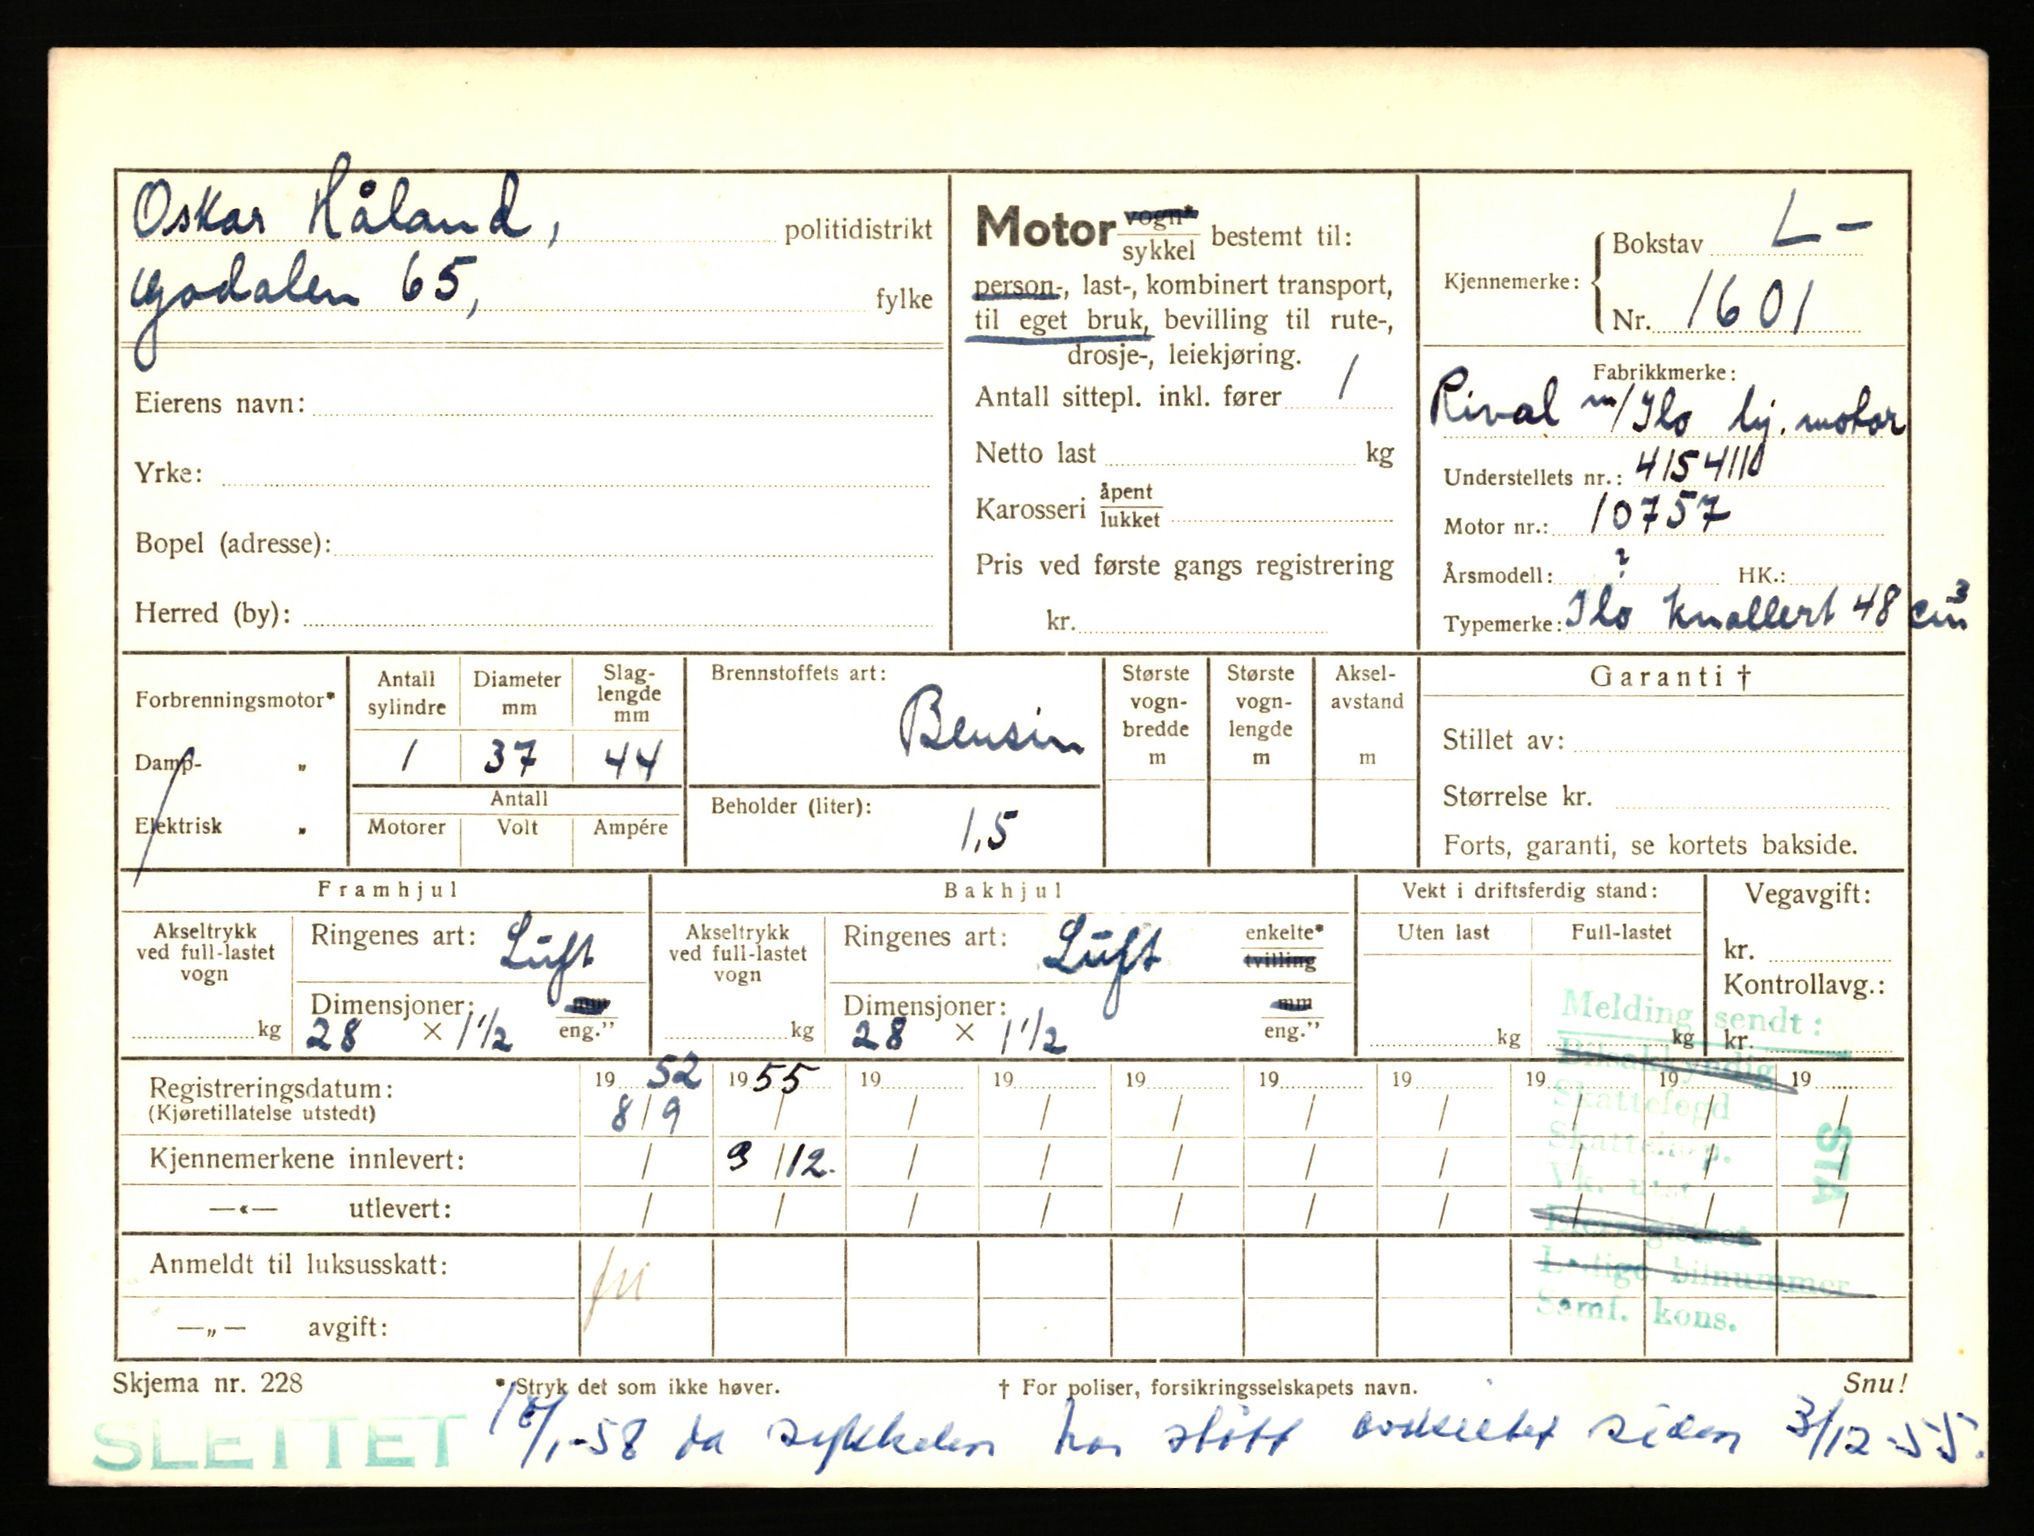 Oskar Håland, politidistrikt
Godalen 65, fylke
Eierens navn:
Yrke:
Bopel (adresse):
Herred (by):
Motor vogn*/sykkel bestemt til:
person-, last-, kombinert transport,
til eget bruk, bevilling til rute-,
drosje-, leiekjøring.
Antall sittepl. inkl. fører 1
Netto last kg
Karosseri åpent/lukket
Pris ved første gangs registrering
kr.
Kjennemerke: Bokstav L-
Nr. 1601
Fabrikkmerke:
Rival m/Ilo hj. motor
Understellets nr.: 4154110
Motor nr.: 10757
Årsmodell: ? HK.:
Typemerke: Ilo Knallert 48 cm³
Forbrenningsmotor*
Damp- „
Elektrisk „
Antall sylindre Diameter mm Slag-lengde mm
1 37 44
Antall
Motorer Volt Ampére
Brennstoffets art:
Bensin
Beholder (liter):
1,5
Største vogn-bredde m
Største vogn-lengde m
Aksel-avstand m
Garanti †
Stillet av:
Størrelse kr.
Forts, garanti, se kortets bakside.
Framhjul
Akseltrykk ved full-lastet vogn
kg
Ringenes art: Luft
Dimensjoner: mm
28 × 1 1/2 eng.”
Bakhjul
Akseltrykk ved full-lastet vogn
kg
Ringenes art: Luft enkelte* tvilling
Dimensjoner: mm
28 × 1 1/2 eng.”
Vekt i driftsferdig stand:
Uten last Full-lastet
kg kg
Vegavgift:
kr.
Kontrollavg.:
kr.
Melding sendt:
Bilsakkyndig
Skattefogd
Samf. kons.
STA
Registreringsdatum: 19 52 19 55 19 19 19 19 19 19 19 19
(Kjøretillatelse utstedt) 8/9 / / / / / / / / /
Kjennemerkene innlevert: / 3/12. / / / / / / / /
—«— utlevert: / / / / / / / / / /
Anmeldt til luksusskatt:
—„— avgift:
Skjema nr. 228 * Stryk det som ikke høver. † For poliser, forsikringsselskapets navn. Snu!
SLETTET 18/1-58 da sykkelen har stått avskiltet siden 3/12-55.